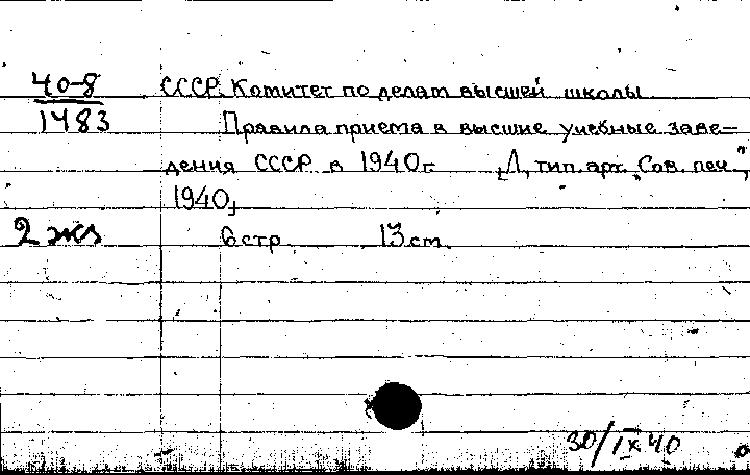 40-8 СССР. Комитет по делам высшей школы
1483 Правила приема в высшие учебные заве-
дения СССР в 1940 г. [Л, тип. арт. "Сов. печ.",
1940]
2 экз 6 стр. 13 см.
30/IX 40